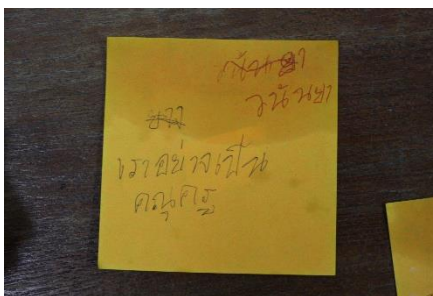 วนันยา
เราอย่างเป็น
คณุครู